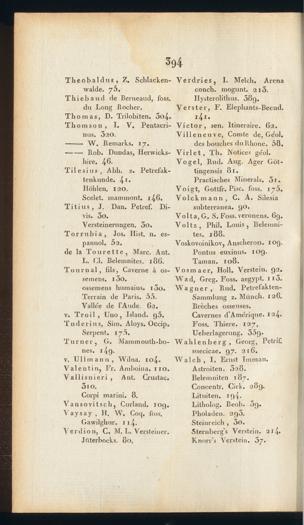 394
Theobaldus, Z. Schlacken-
walde. 75.
Thiebaud de Berneaud, foss.
du Long Rocher.
Thomas, D. Trilobiten. 304.
Thomson, I. V. Pentacri-
nus. 320.
—— W. Remarks. 17.
—— Rob. Dundas, Herwicks-
hire. 46.
Tilesius, Abh. z. Petrefak-
tenkunde. 41.
Höhlen. 120.
Scelet. mammont. 146.
Titius, J. Dan. Petref. Di-
vis. 30.
Versteinerungen. 30.
Torrubia, Jos. Hist. n. es-
pannol. 52.
de la Tourette, Marc. Ant.
L. Cl. Belemnites. 186.
Tournal, fils, Caverne à os-
semens. 130.
ossemens humains. 130.
Terrain de Paris. 55.
Vallée de l'Aude. 62.
v. Troil, Uno, Island. 95.
Tuderius, Sim. Aloys. Occip.
Serpent. 173.
Turner, G. Mammouth-bo-
nes. 149.
v. Ullmann, Wilna. 104.
Valentin, Fr. Amboina. 110.
Vallisnieri, Ant. Crustac.
310.
Corpi marini. 8.
Vansovitsch, Curland. 109.
Vaysay, H. W. Coq. foss.
Gawilghur. 114.
Verdion, C. M. L. Versteiner.
Jüterbocks. 80.
Verdries, I. Melch. Arena
conch. mogunt. 213.
Hysterolithus. 389.
Verster, F. Elephants-Becud.
141.
Victor, sen. Itineraire. 62.
Villeneuve, Comte de, Géol.
des bouches du Rhone. 58.
Virlet, Th. Notices géol.
Vogel, Rud. Aug. Ager Göt-
tingensis 81.
Practisches Minerals. 31.
Voigt, Gottfr. Pisc. foss. 175.
Volckmann, C. A. Silesia
subterranea. 90.
Volta, G. S. Foss. veronens. 69.
Voltz, Phil. Louis, Belemni-
tes. 188.
Voskovoinikov, Anscheron. 109.
Pontus euxinus. 109.
Taman. 108.
Vosmaer, Holl. Verstein. 92.
Wad, Greg. Foss. aegypt. 113.
Wagner, Rud. Petrefakten-
Sammlung z. Münch. 126.
Brèches osseuses.
Cavernes d'Amérique. 124.
Foss. Thiere. 127.
Ueberlagerung. 359.
Wahlenberg, Georg, Petrif.
suecicae. 97. 216.
Walch, I. Ernst Imman.
Astroiten. 328.
Belemniten 187.
Concentr. Cirk. 289.
Lituiten. 194.
Litholog. Beob. 39.
Pholaden. 293.
Steinreich, 30.
Sternberg's Verstein. 214.
Knorr's Verstein. 37.